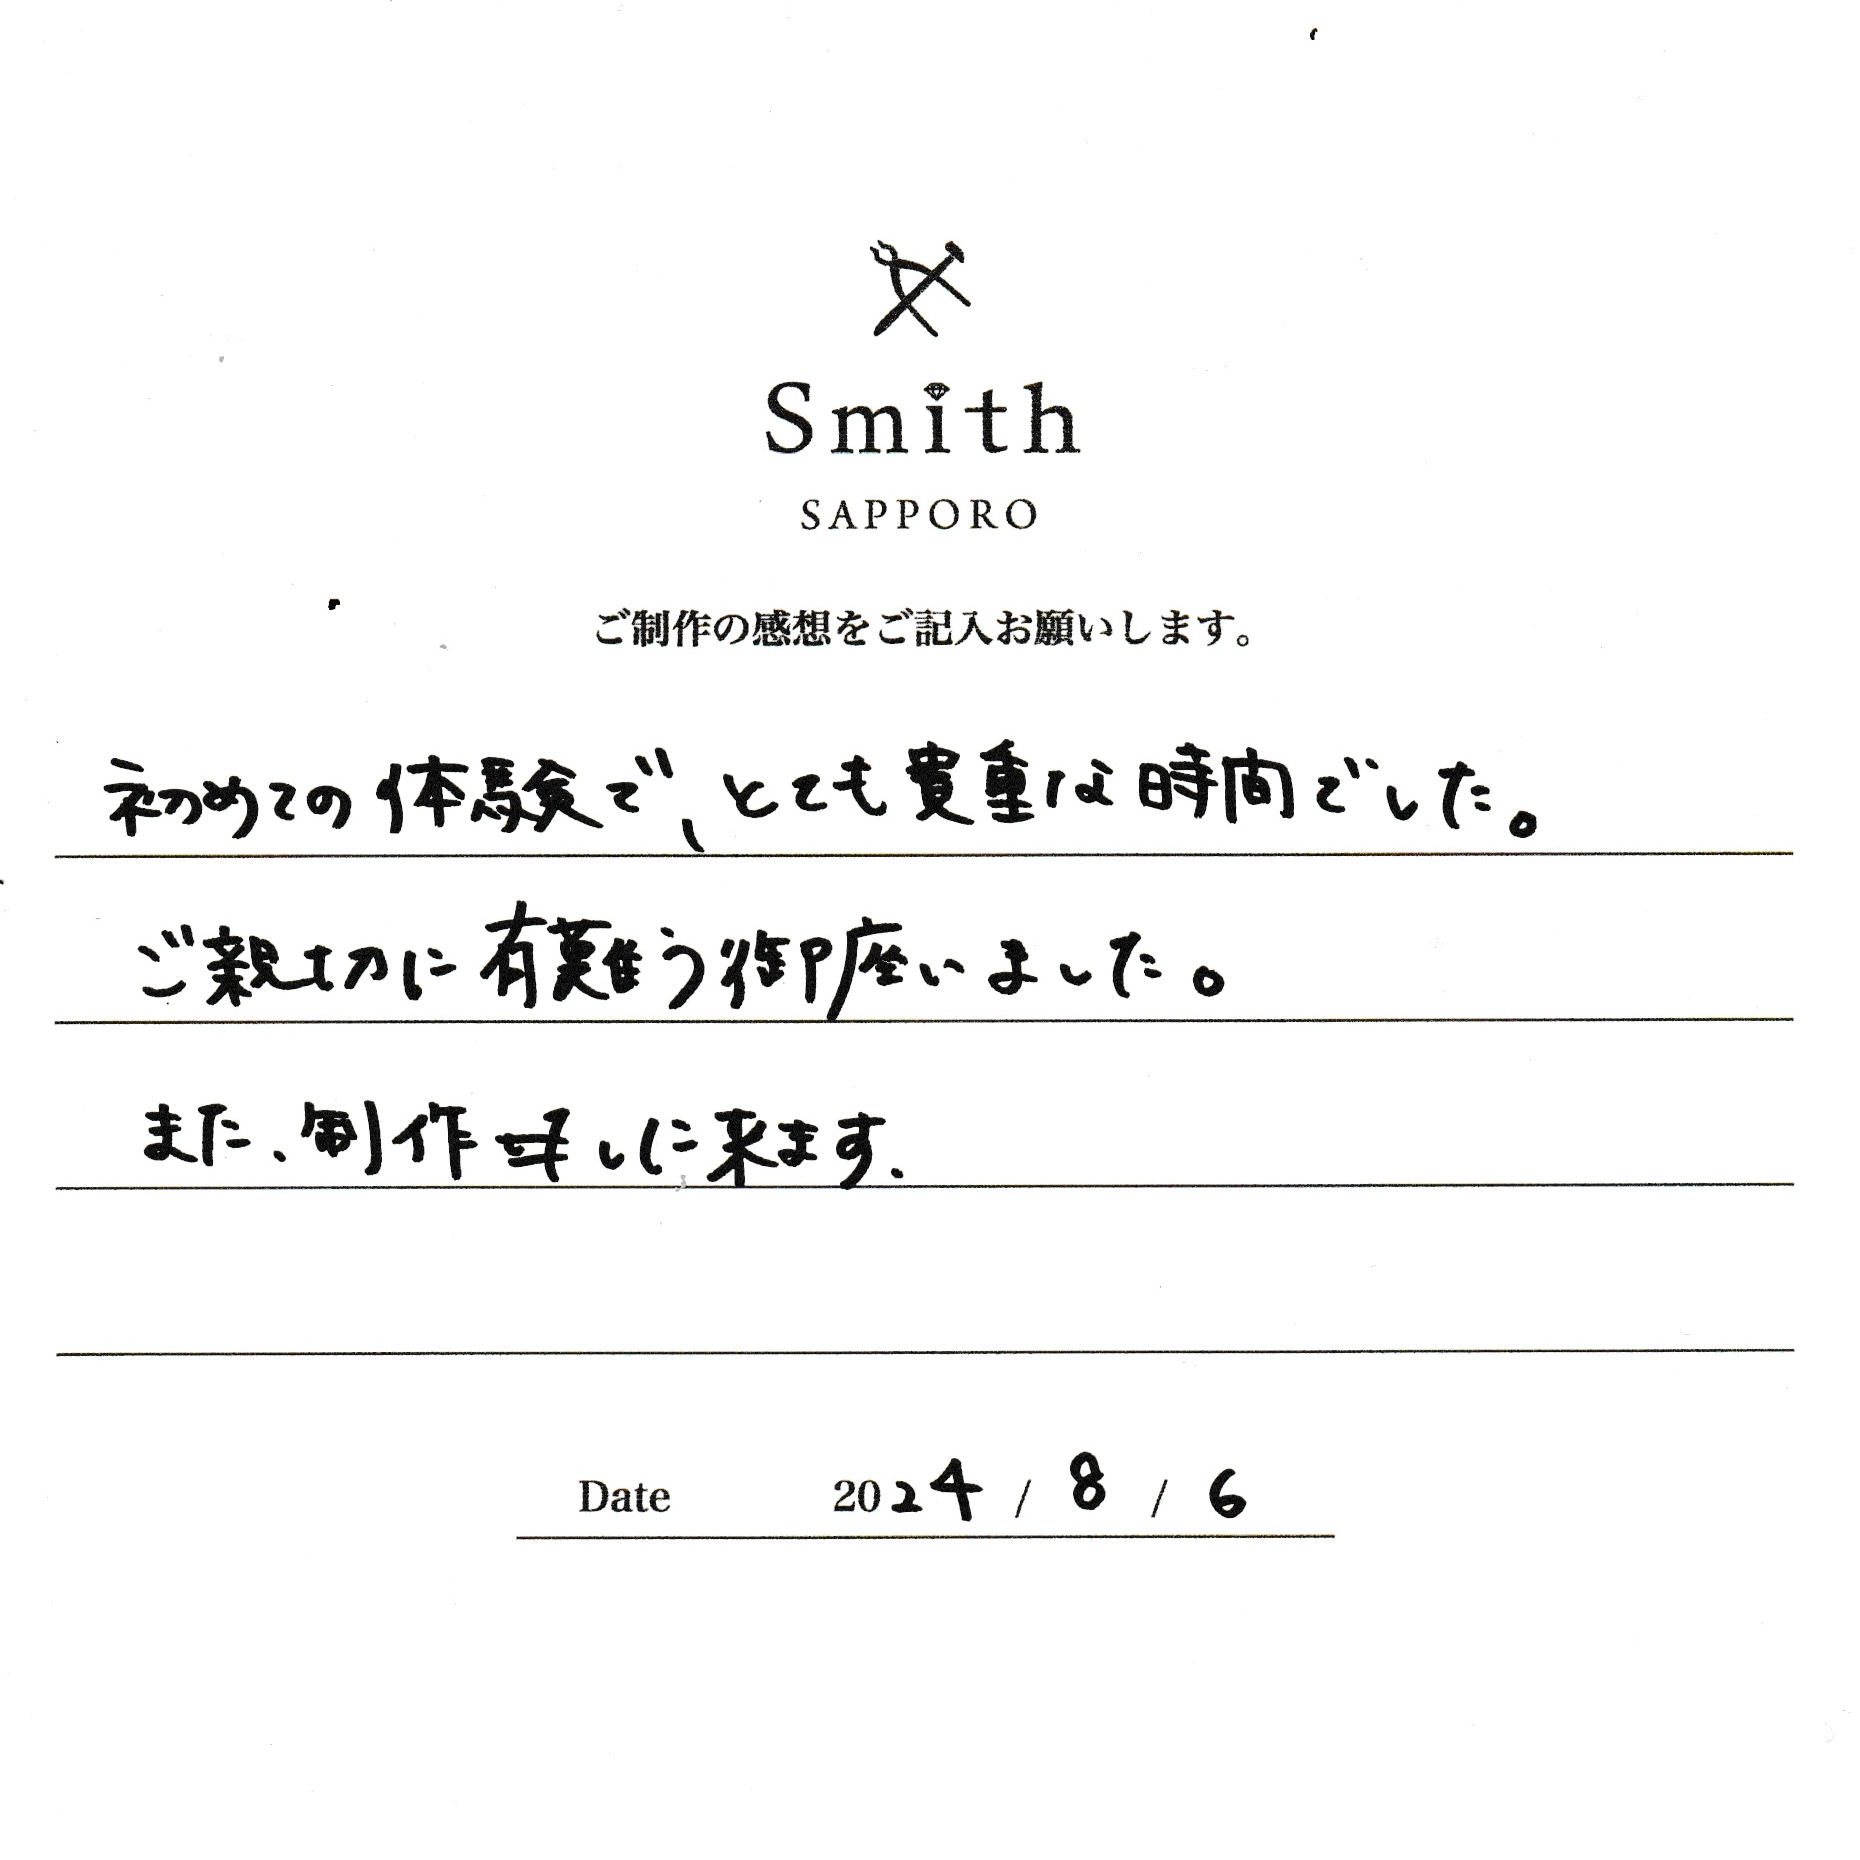 Smith
SAPPORO
ご制作の感想をご記入お願いします。
初めての体験で、とても貴重な時間でした。
ご親切に有難う御座いました。
また、制作しに来ます.
Date 2024 / 8 / 6